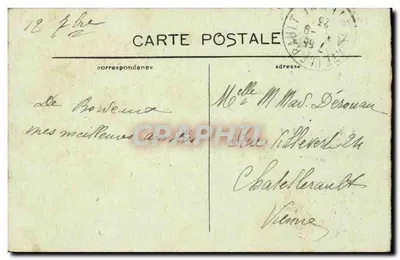 12 7bre
CARTE POSTALE
correspondance
adresse
De Bordeaux
mes meilleures amitiés
Melle M Mad. Dérouau
Rue Villevert 24
Chatellerault
Vienne
CPARAMA